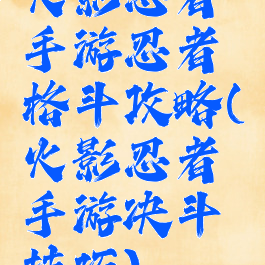 火影忍者
手游忍者
格斗攻略(
火影忍者
手游决斗
技巧)